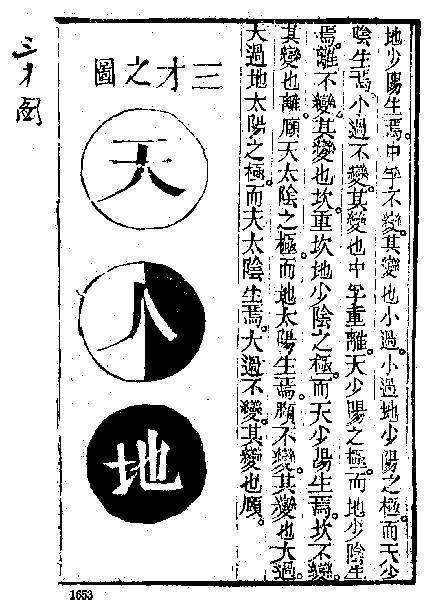 地少陽生焉。中孚不變。其變也小過。小過地少陽之極。而天少
陰生焉。小過不變。其變也中孚重離。天少陽之極。而地少陰生
焉。離不變。其變也坎。重坎地少陰之極。而天少陽生焉。坎不變。
其變也離。頤天太陰之極。而地太陽生焉。頤不變。其變也大過。
大過地太陽之極。而天太陰生焉。大過不變。其變也頤。
三才之圖
天
人
地
三才圖
1653